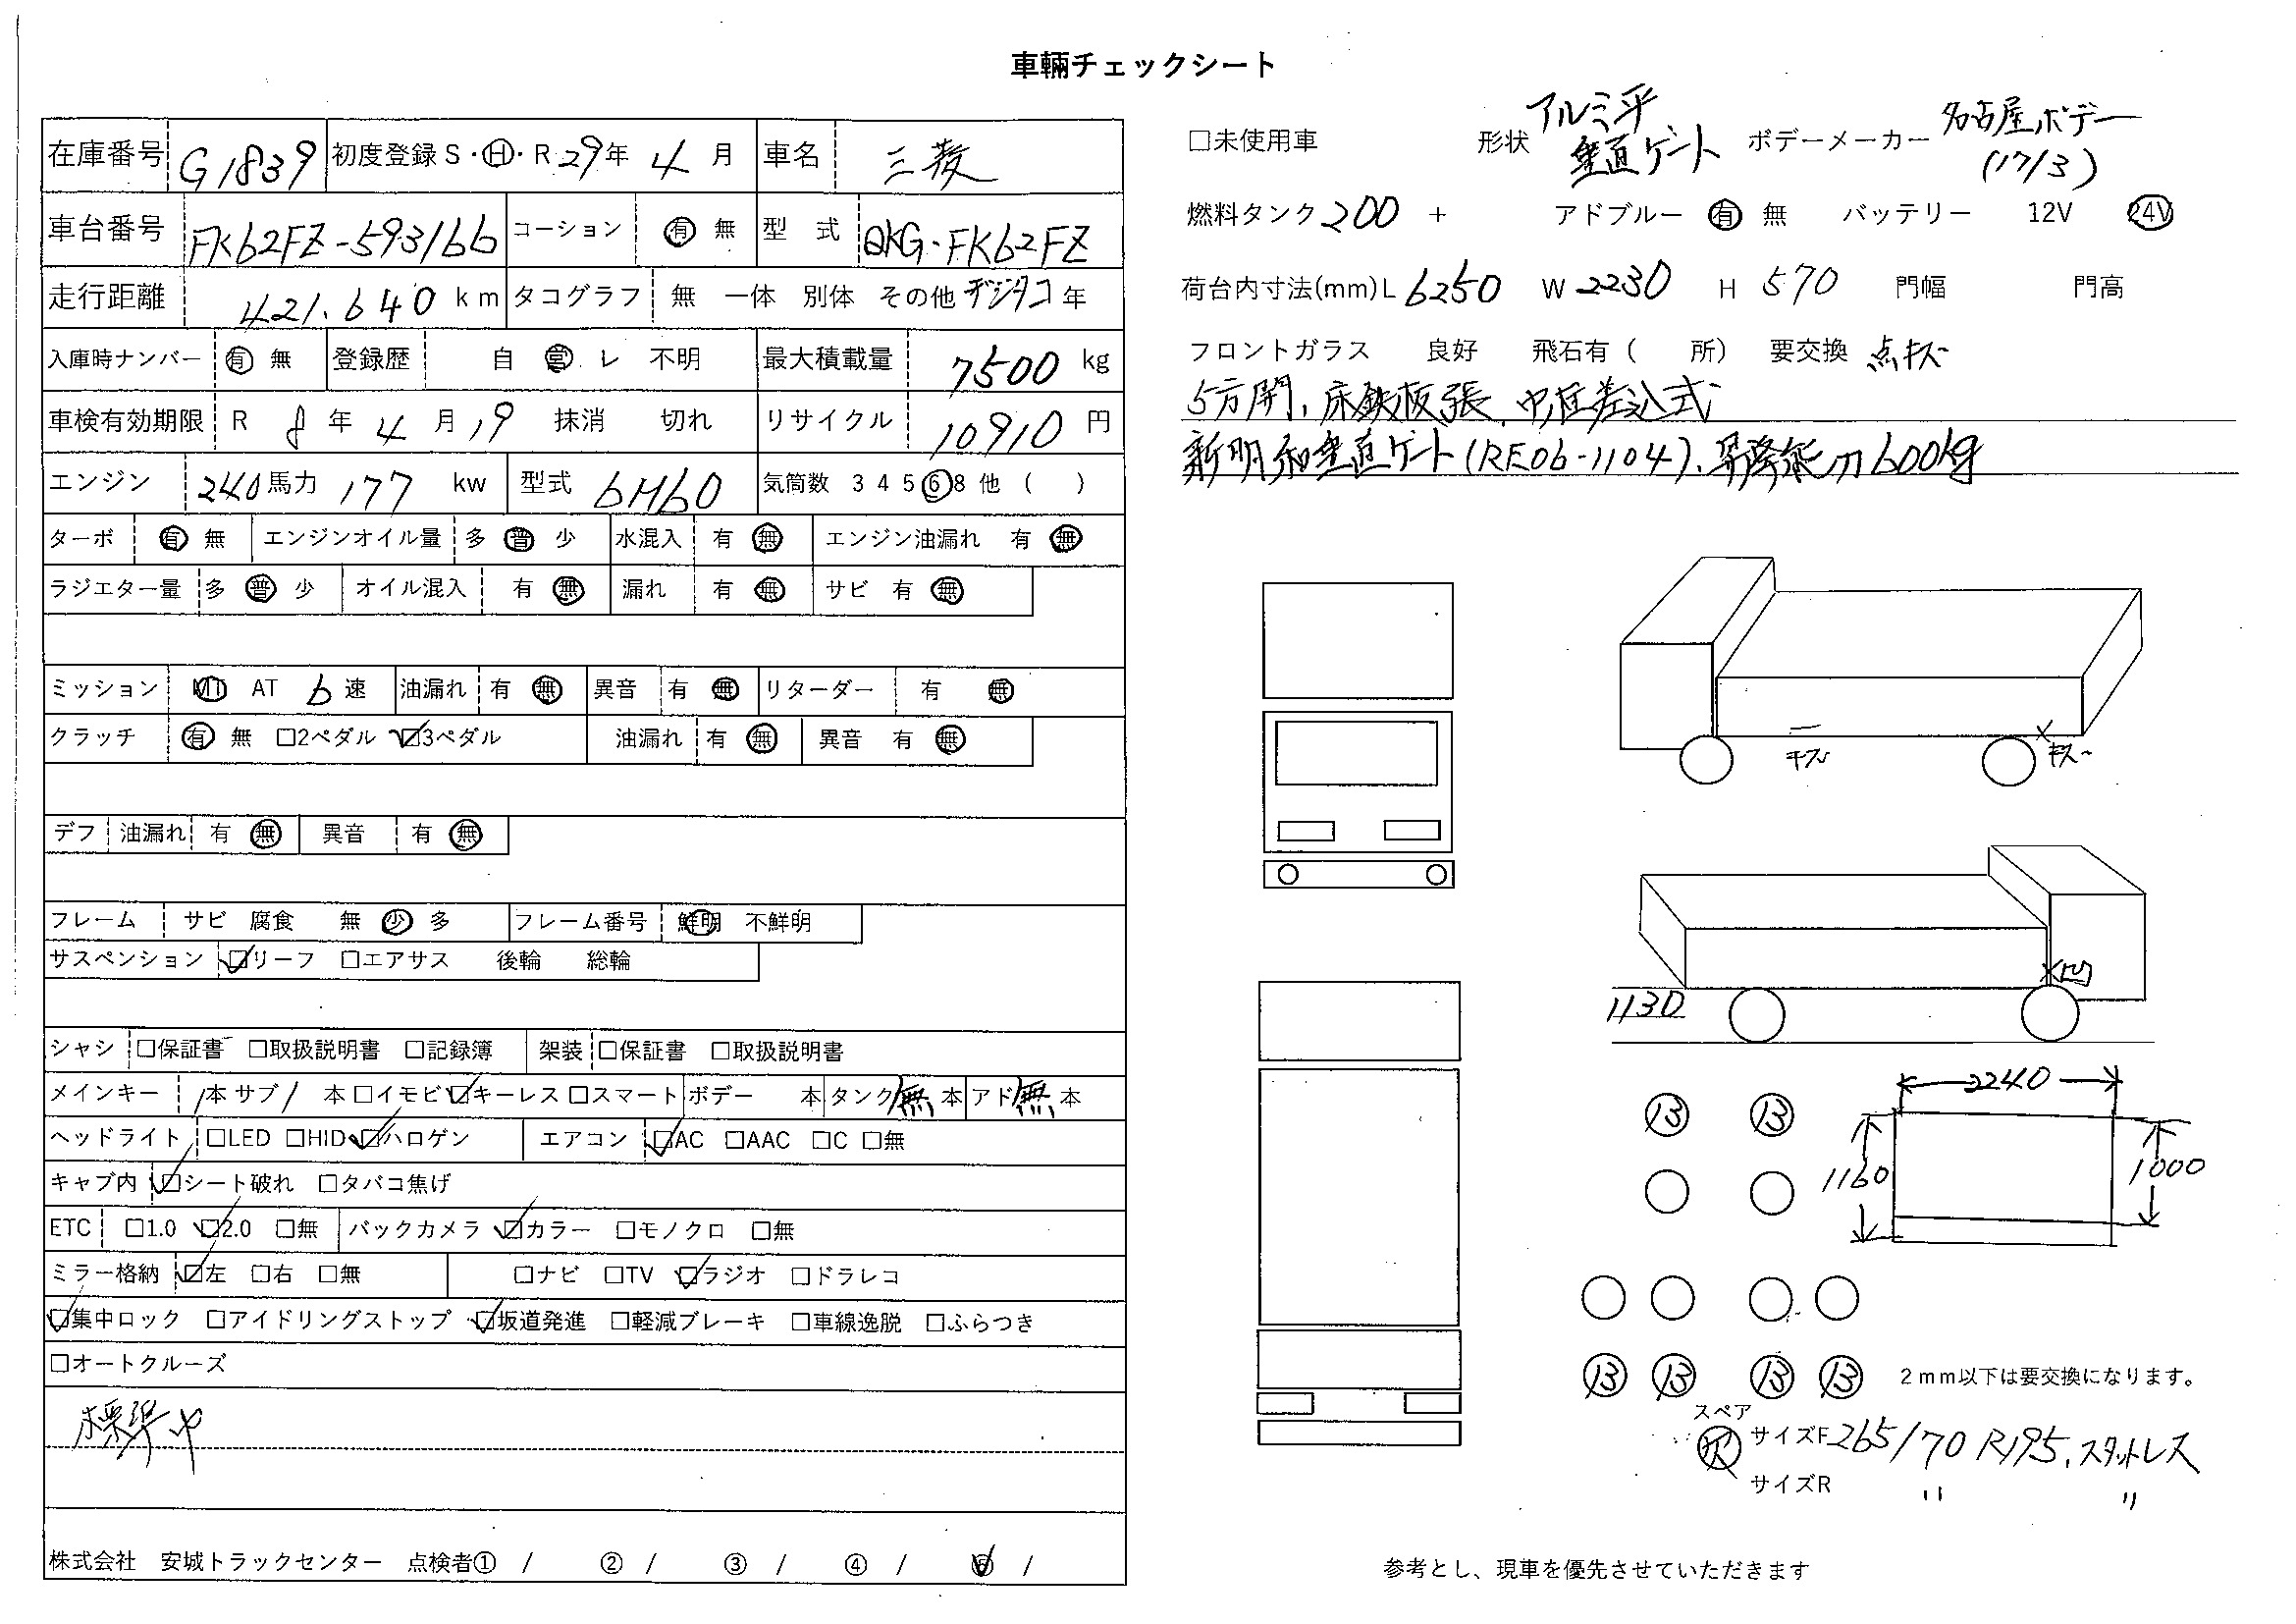 車輛チェックシート
在庫番号 G1839 初度登録 S・Ⓗ・R 29年 4月 車名 三菱
車台番号 FK62FZ-593166 コーション 有 無 型式 QKG-FK62FZ
走行距離 421.640 km タコグラフ 無 一体 別体 その他 デジタコ 年
入庫時ナンバー 有 無 登録歴 自 営 レ 不明 最大積載量 7500 kg
車検有効期限 R 8年 4月 19 抹消 切れ リサイクル 10910 円
エンジン 240馬力 177 kw 型式 6M60 気筒数 3 4 5 ⑥ 8 他 ( )
ターボ 有 無 エンジンオイル量 多 普 少 水混入 有 無 エンジン油漏れ 有 無
ラジエター量 多 普 少 オイル混入 有 無 漏れ 有 無 サビ 有 無
ミッション MT AT 6速 油漏れ 有 無 異音 有 無 リターダー 有 無
クラッチ 有 無 □2ペダル ☑3ペダル 油漏れ 有 無 異音 有 無
デフ 油漏れ 有 無 異音 有 無
フレーム サビ 腐食 無 少 多 フレーム番号 鮮明 不鮮明
サスペンション ☑リーフ □エアサス 後輪 総輪
シャシ □保証書 □取扱説明書 □記録簿 架装 □保証書 □取扱説明書
メインキー 1本 サブ 1本 □イモビ ☑キーレス □スマート ボデー 本 タンク 無 本 アド 無 本
ヘッドライト □LED □HID ☑ハロゲン エアコン ☑AC □AAC □C □無
キャブ内 ☑シート破れ □タバコ焦げ
ETC □1.0 ☑2.0 □無 バックカメラ ☑カラー □モノクロ □無
ミラー格納 ☑左 □右 □無 □ナビ □TV ☑ラジオ □ドラレコ
☑集中ロック □アイドリングストップ ☑坂道発進 □軽減ブレーキ □車線逸脱 □ふらつき
□オートクルーズ
標準巾
株式会社 安城トラックセンター 点検者① / ② / ③ / ④ / ⑤ /
□未使用車 形状 アルミ平 垂直ゲート ボデーメーカー 名古屋ボデー (17/3)
燃料タンク 200 + アドブルー 有 無 バッテリー 12V 24V
荷台内寸法(mm) L 6250 W 2230 H 570 門幅 門高
フロントガラス 良好 飛石有 ( 所) 要交換 点キズ
5方開、床鉄板張、中柱差込式
新明和垂直ゲート(RE06-1104)、昇降能力600kg
キズ
キズ
凹
1130
2240
1160
1000
⑬ ⑬
⑬ ⑬ ⑬ ⑬ 2mm以下は要交換になります。
スペア
欠 サイズF 265/70 R19.5、スタットレス
サイズR 〃 〃
参考とし、現車を優先させていただきます